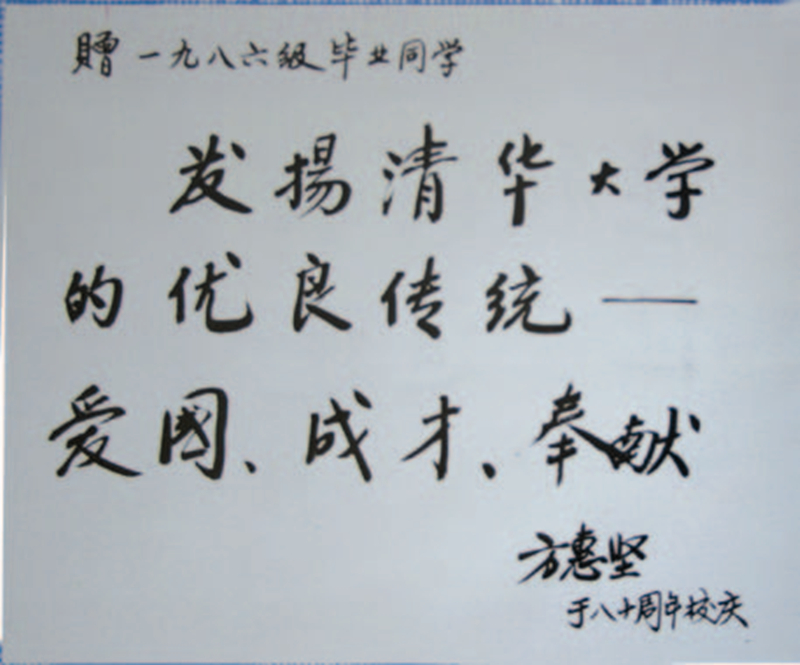 贈一九八六级毕业同学
发揚清华大学
的优良传统——
爱國、成才、奉献
方惠坚
于八十周年校庆